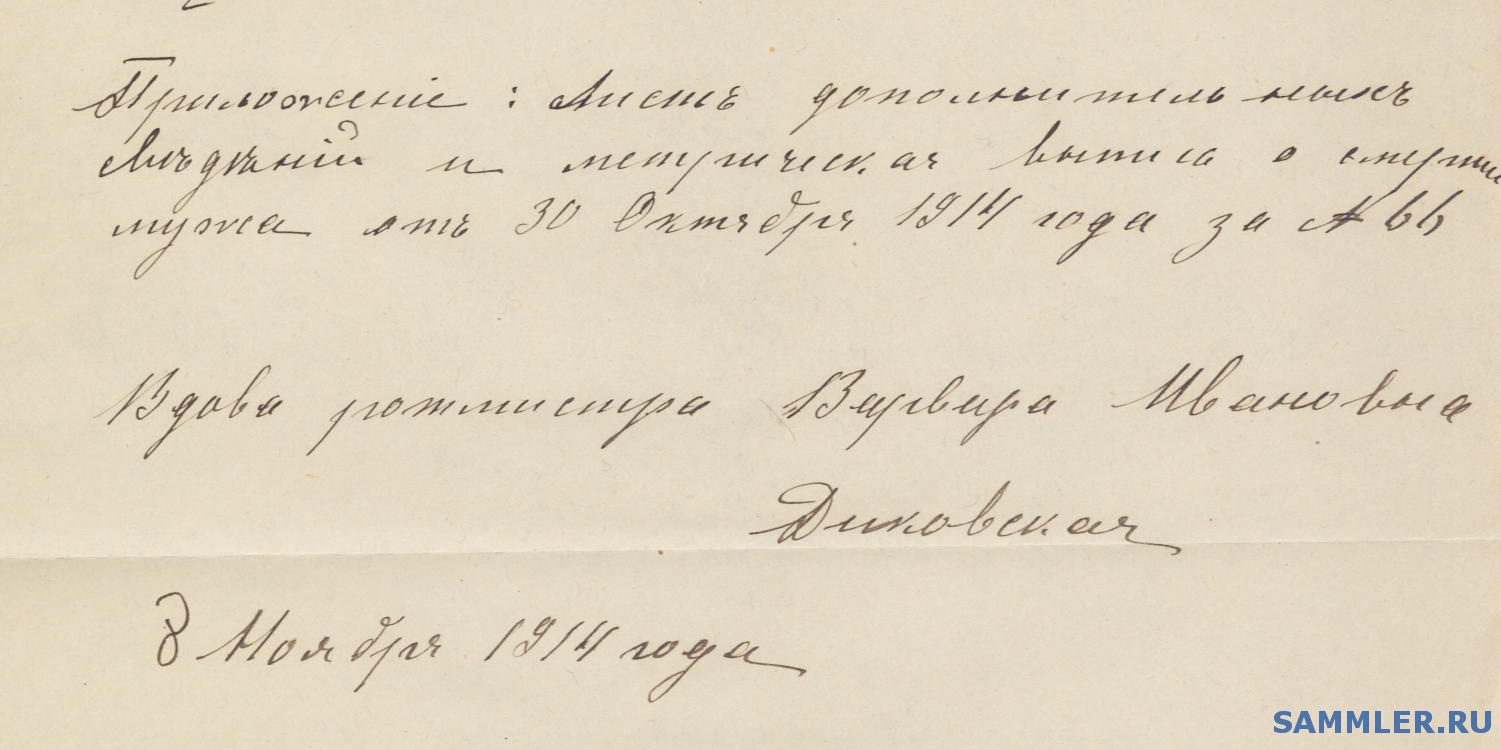 Приложеніе: Листъ дополнительныхъ
свѣдѣній и метрическая выпись о смерти
мужа отъ 30 Октября 1914 года за № 66
Вдова ротмистра Варвара Ивановна
Диковская
8 Ноября 1914 года
SAMMLER.RU